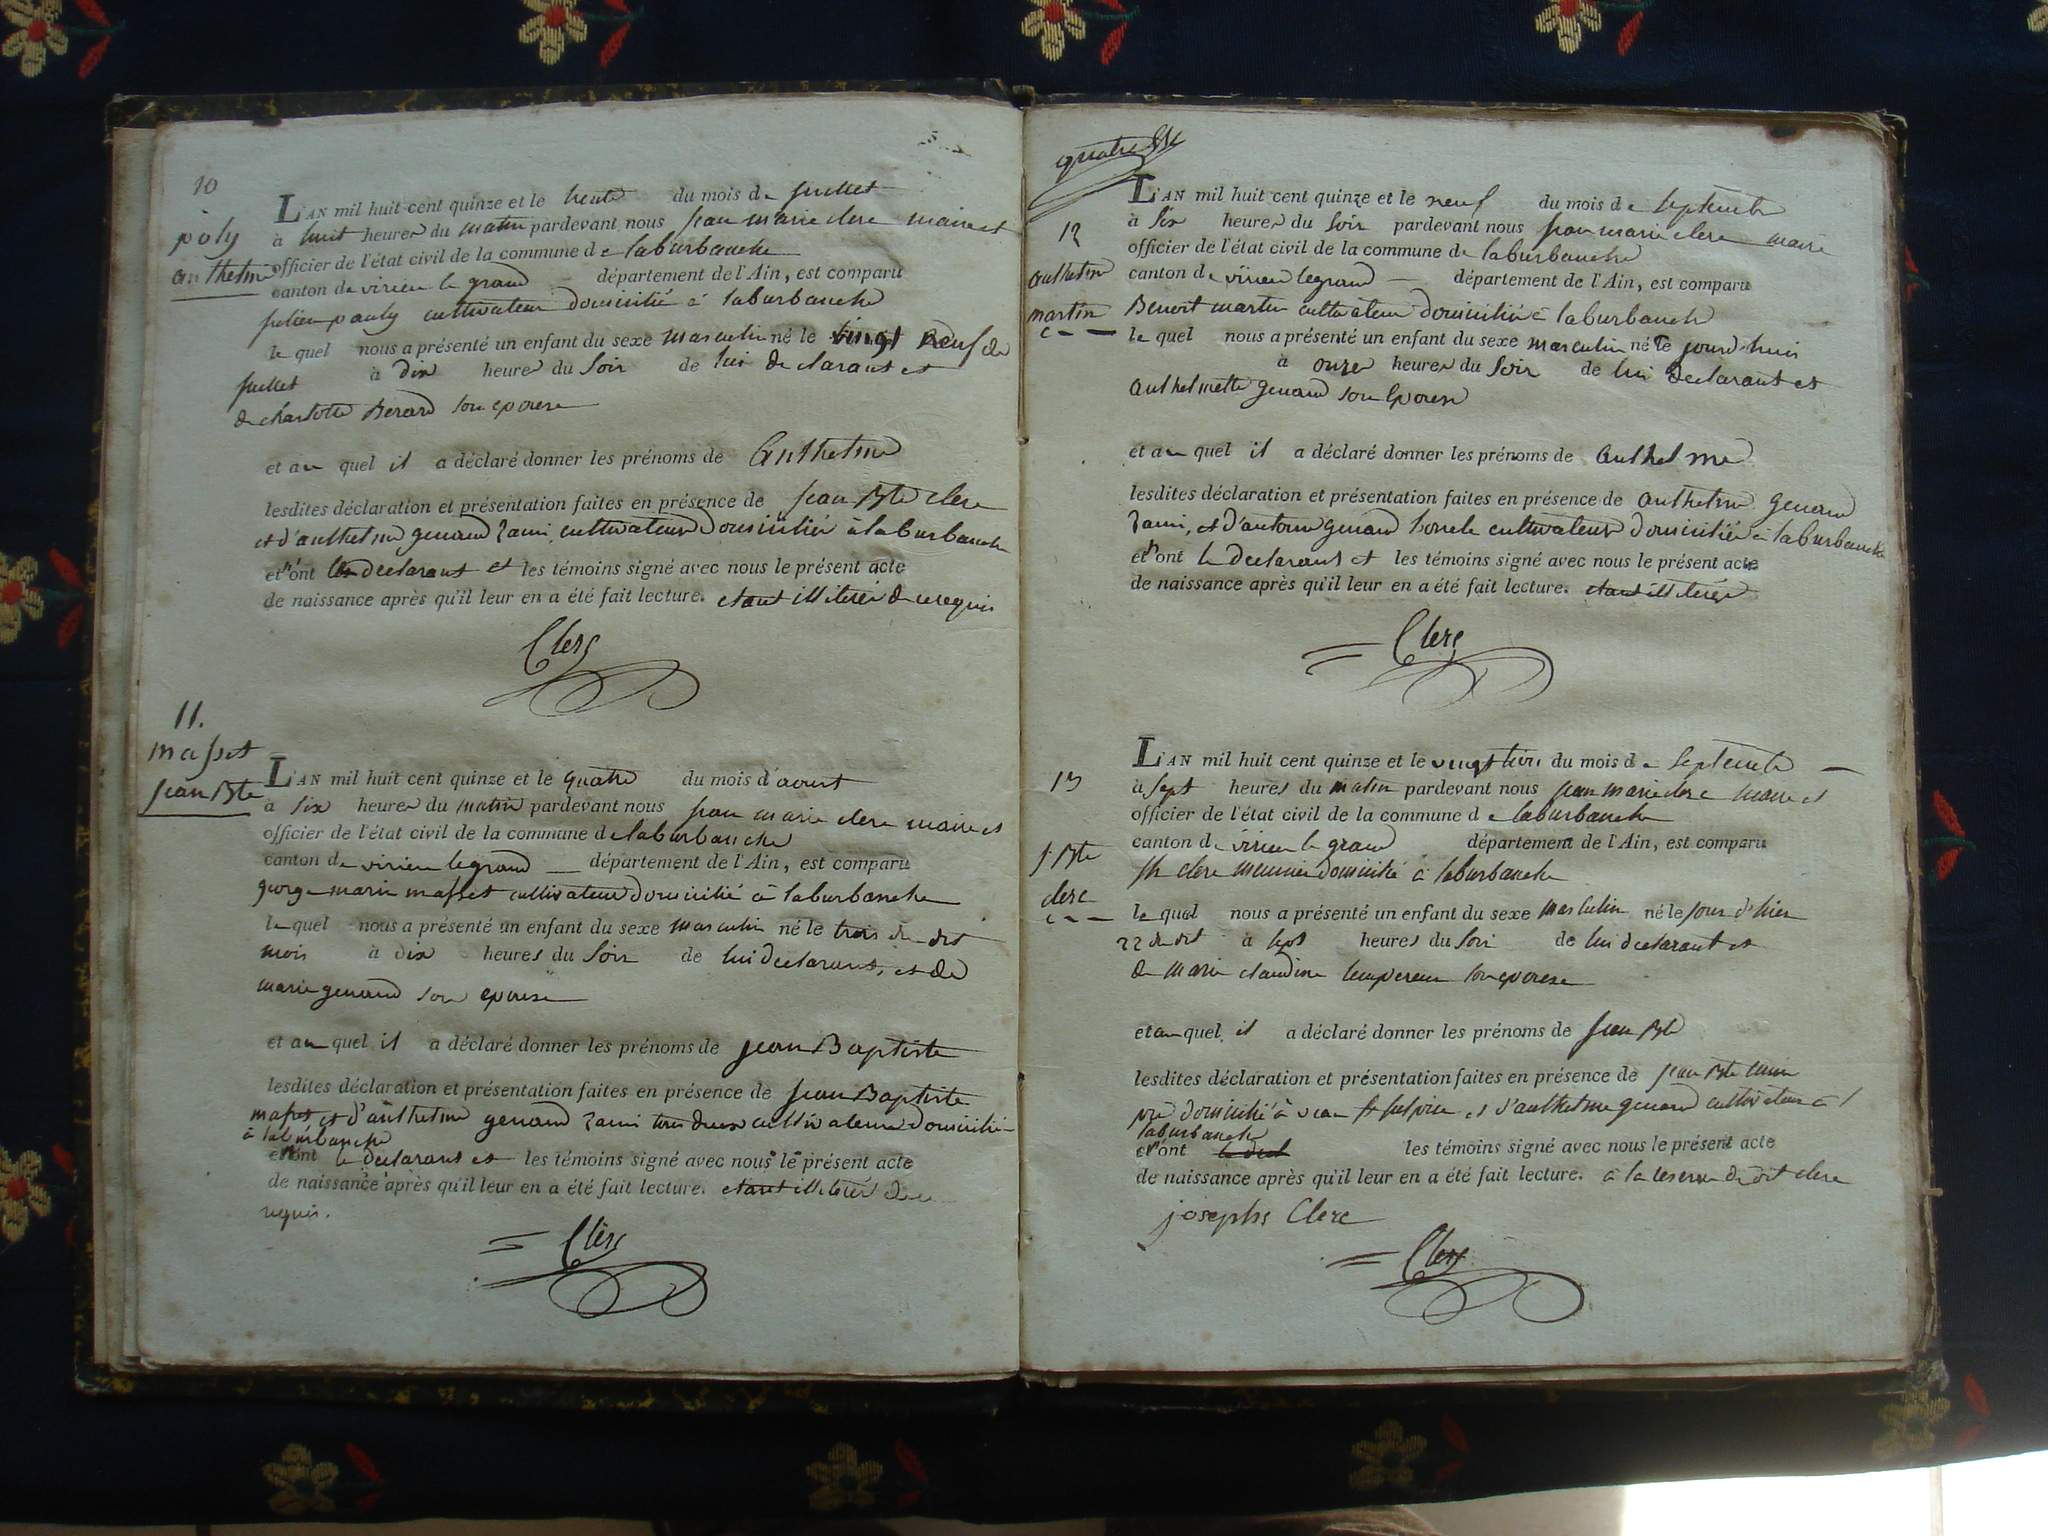 10
poly
anthelme
L'AN mil huit cent quinze et le trente du mois de juillet
à huit heures du matin pardevant nous jean marie clerc maire et
officier de l'état civil de la commune de laburbanche
canton de virieu le grand département de l'Ain, est comparu
julien pauly cultivateur domicilié à laburbanche
le quel nous a présenté un enfant du sexe masculin né le vingt neuf de
juillet à dix heures du soir de lui declarant et
de charlotte Berard son epouse
et au quel il a déclaré donner les prénoms de Anthelme
lesdites déclaration et présentation faites en présence de jean Bte clerc
et d'anthelme genand cultivateurs domiciliés à laburbanche
et n'ont le declarant et les témoins signé avec nous le présent acte
de naissance après qu'il leur en a été fait lecture. etant illiteré de ce requis
Clerc
11.
masset
jean Bte
L'AN mil huit cent quinze et le quatre du mois d'aout
à six heures du matin pardevant nous jean marie clerc maire et
officier de l'état civil de la commune de laburbanche
canton de virieu le grand département de l'Ain, est comparu
george marie masset cultivateur domicilié à laburbanche
le quel nous a présenté un enfant du sexe masculin né le trois du dit
mois à dix heures du soir de lui declarant, et de
marie genand son epouse
et au quel il a déclaré donner les prénoms de jean Baptiste
lesdites déclaration et présentation faites en présence de jean Baptiste
masset, et d'anthelme genand tous deux cultivateurs domiciliés
à laburbanche
et n'ont le declarant et les témoins signé avec nous le présent acte
de naissance après qu'il leur en a été fait lecture. etant illiteré de ce
requis.
Clerc
quatre
12
anthelme
martin
L'AN mil huit cent quinze et le neuf du mois de septembre
à six heures du soir pardevant nous jean marie clerc maire
officier de l'état civil de la commune de laburbanche
canton de virieu le grand département de l'Ain, est comparu
Benoit martin cultivateur domicilié à laburbanche
le quel nous a présenté un enfant du sexe masculin né le jourd'huis
à onze heures du soir de lui declarant et
anthelmette genand son epouse
et au quel il a déclaré donner les prénoms de anthelme
lesdites déclaration et présentation faites en présence de anthelme genand
et d'antoine genand cultivateurs domiciliés à laburbanche
et n'ont le declarant et les témoins signé avec nous le présent acte
de naissance après qu'il leur en a été fait lecture. etant illiteré
Clerc
13
j Bte
clerc
L'AN mil huit cent quinze et le vingt trois du mois de septembre
à sept heures du matin pardevant nous jean marie clerc maire et
officier de l'état civil de la commune de laburbanche
canton de virieu le grand département de l'Ain, est comparu
jh clerc meunier domicilié à laburbanche
le quel nous a présenté un enfant du sexe masculin né le jour d'hier
22 du dit à sept heures du soir de lui declarant et
de marie claudine tempereur son epouse
et au quel il a déclaré donner les prénoms de jean Bte
lesdites déclaration et présentation faites en présence de jean Bte
domicilié à et d'anthelme genand cultivateur à
laburbanche
et n'ont le decl les témoins signé avec nous le présent acte
de naissance après qu'il leur en a été fait lecture. à la reserve du dit clerc
josephs Clerc
Clerc